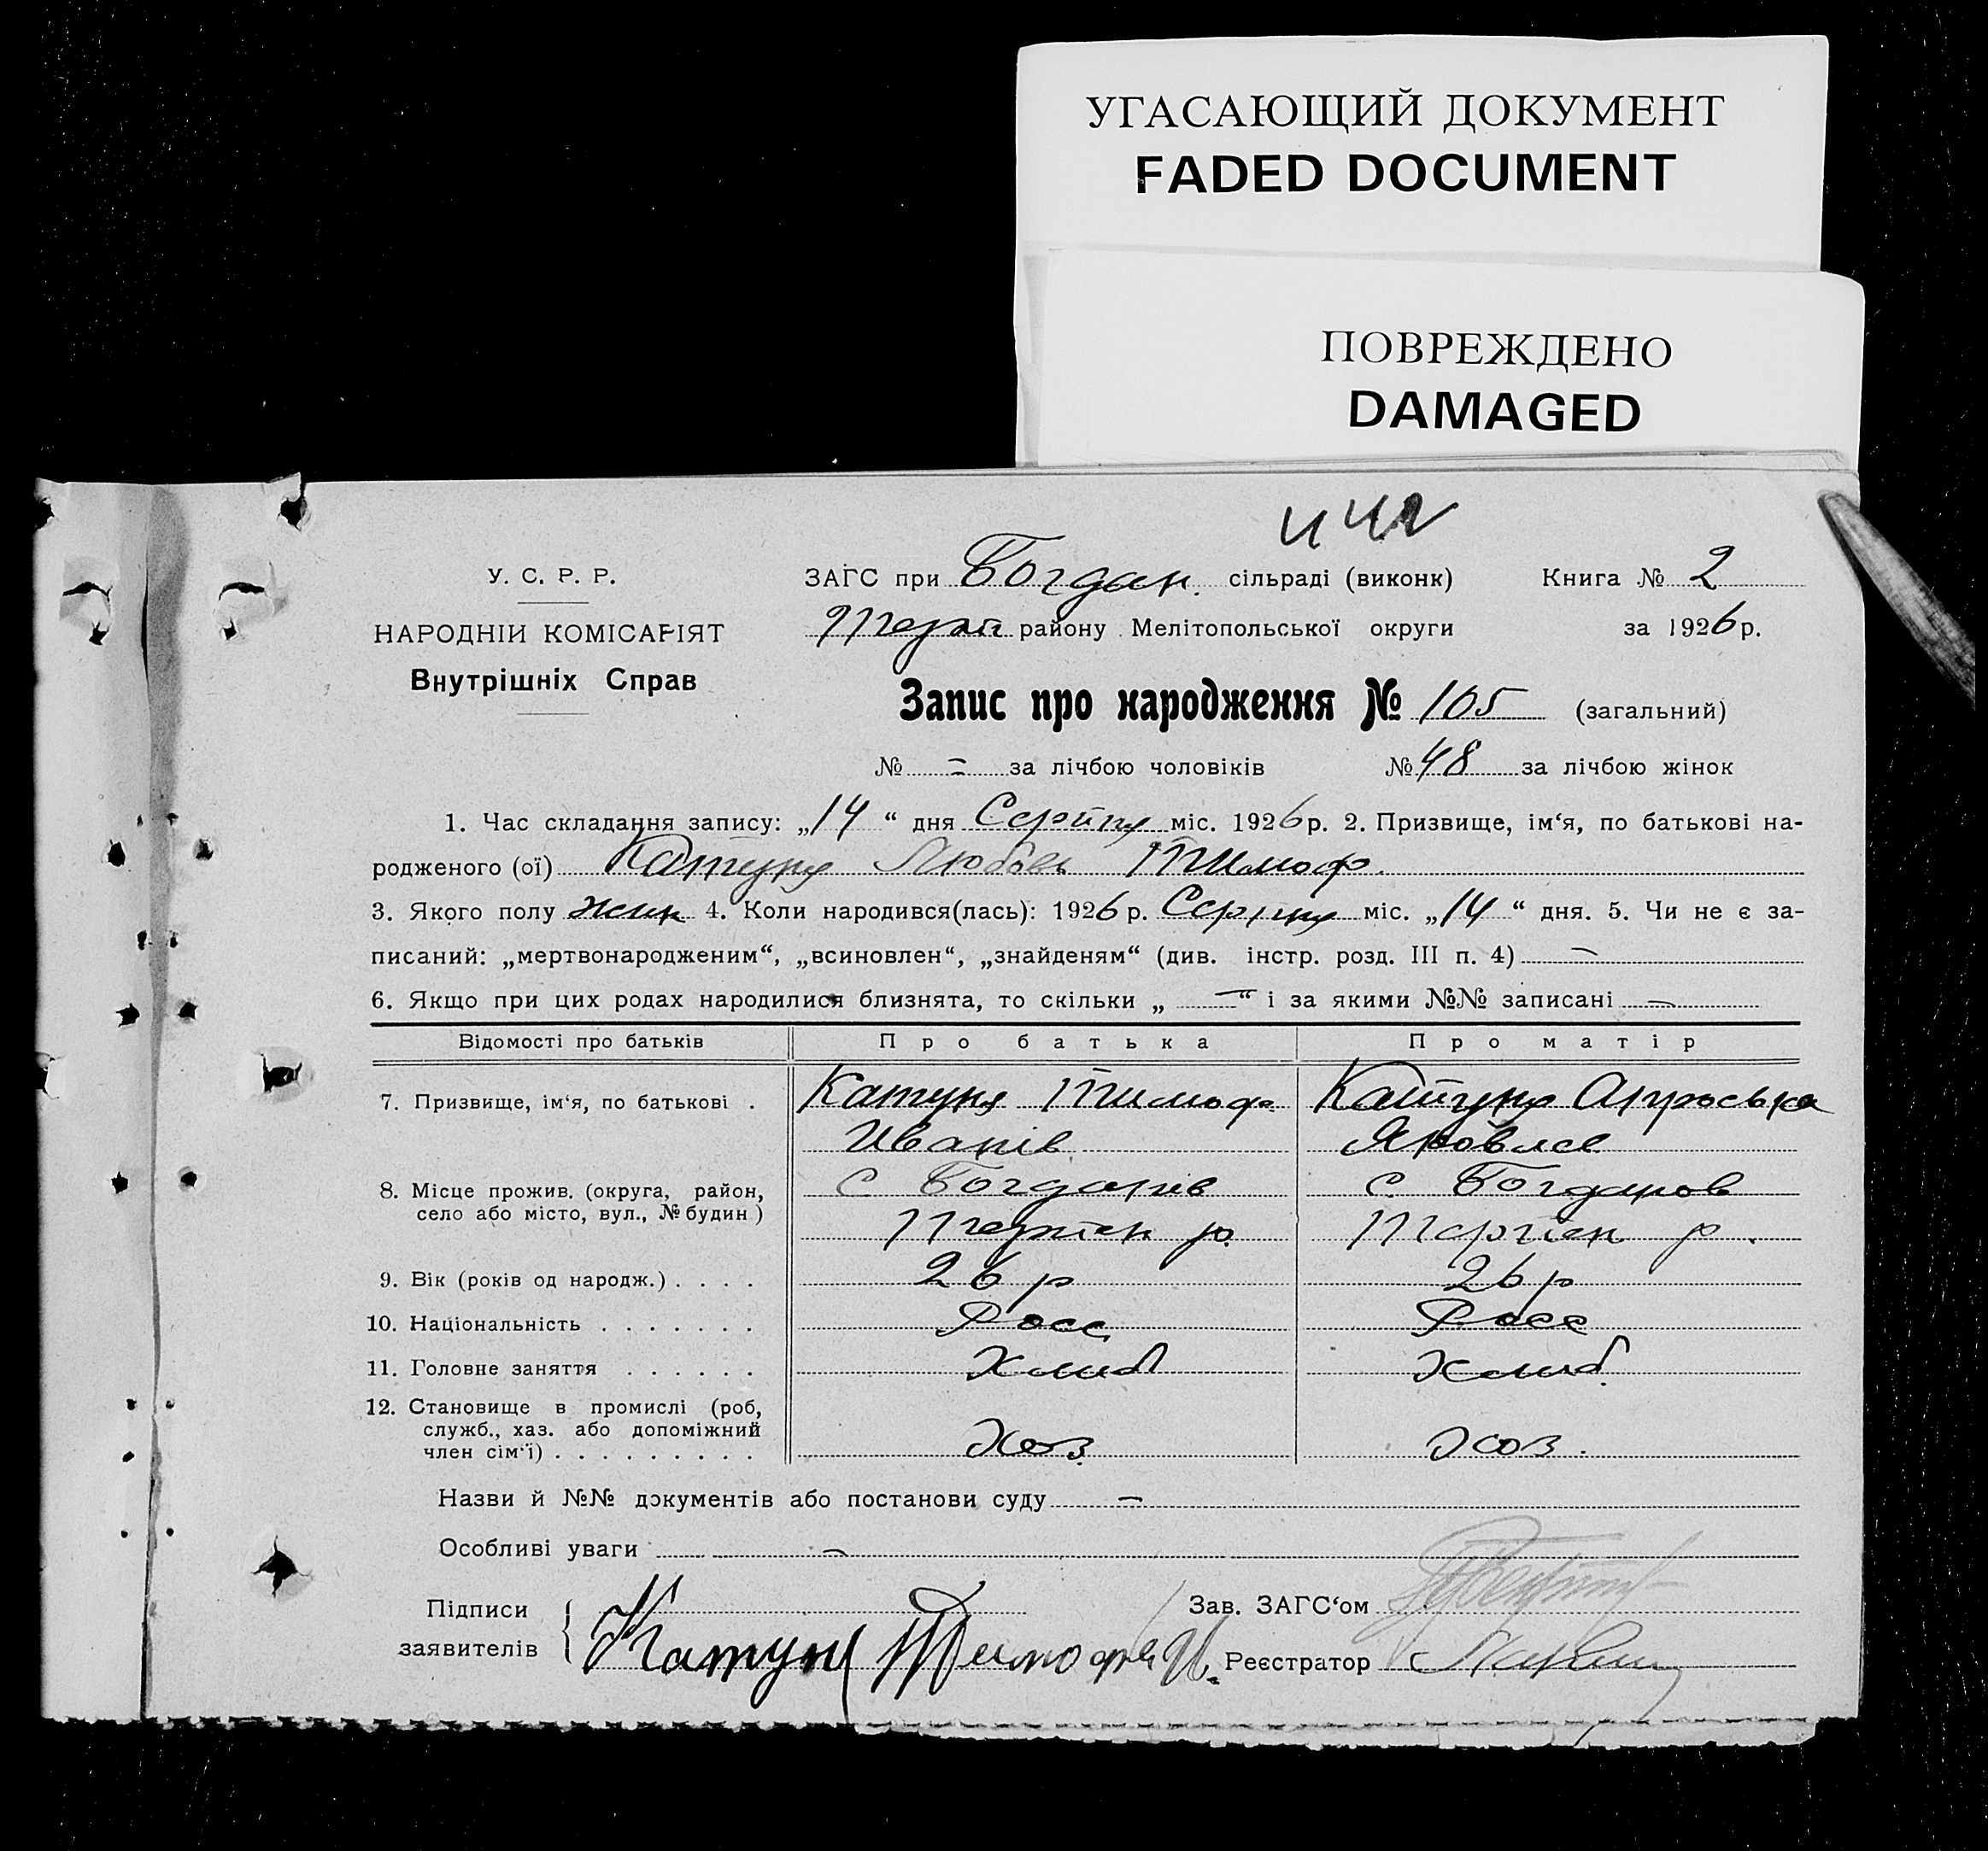 УГАСАЮЩИЙ ДОКУМЕНТ
FADED DOCUMENT
ПОВРЕЖДЕНО
DAMAGED
У. С. Р. Р.
НАРОДНІЙ КОМІСАРІЯТ
Внутрішніх Справ
ЗАГС при Богдан. сільраді (виконк)
Книга № 2
району Мелітопольської округи
за 1926 р.
Запис про народження № 105 (загальний)
№ = за лічбою чоловіків № 48 за лічбою жінок
1. Час складання запису: „14“ дня Серпня міс. 1926 р. 2. Призвище, ім‘я, по батькові на-
родженого (ої) Катуня Любовь Тимоф.
3. Якого полу жин 4. Коли народився(лась): 1926 р. Серпня міс. „14“ дня. 5. Чи не є за-
писаний: „мертвонародженим“, „всиновлен“, „знайденям“ (див. інстр. розд. III п. 4) —
6. Якщо при цих родах народилися близнята, то скільки „ — “ і за якими №№ записані —
Відомості про батьків Про батька Про матір
7. Призвище, ім‘я, по батькові . Катуня Тимоф. Катуня
Иванів Яковлев
8. Місце прожив. (округа, район, с. Богданів с. Богданов
село або місто, вул., № будин) р. р.
9. Вік (років од народж.) . . . . 26 р 26 р
10. Національність . . . . . . . Росс Росс
11. Головне заняття . . . . . . Хлиб Хлиб.
12. Становище в промислі (роб,
служб., хаз. або допоміжний
член сім‘ї) . . . . . . . . . Хоз Хоз.
Назви й №№ документів або постанови суду —
Особливі уваги —
Підписи
заявителів
Зав. ЗАГС‘ом
Катун Тимофей И.
Реєстратор